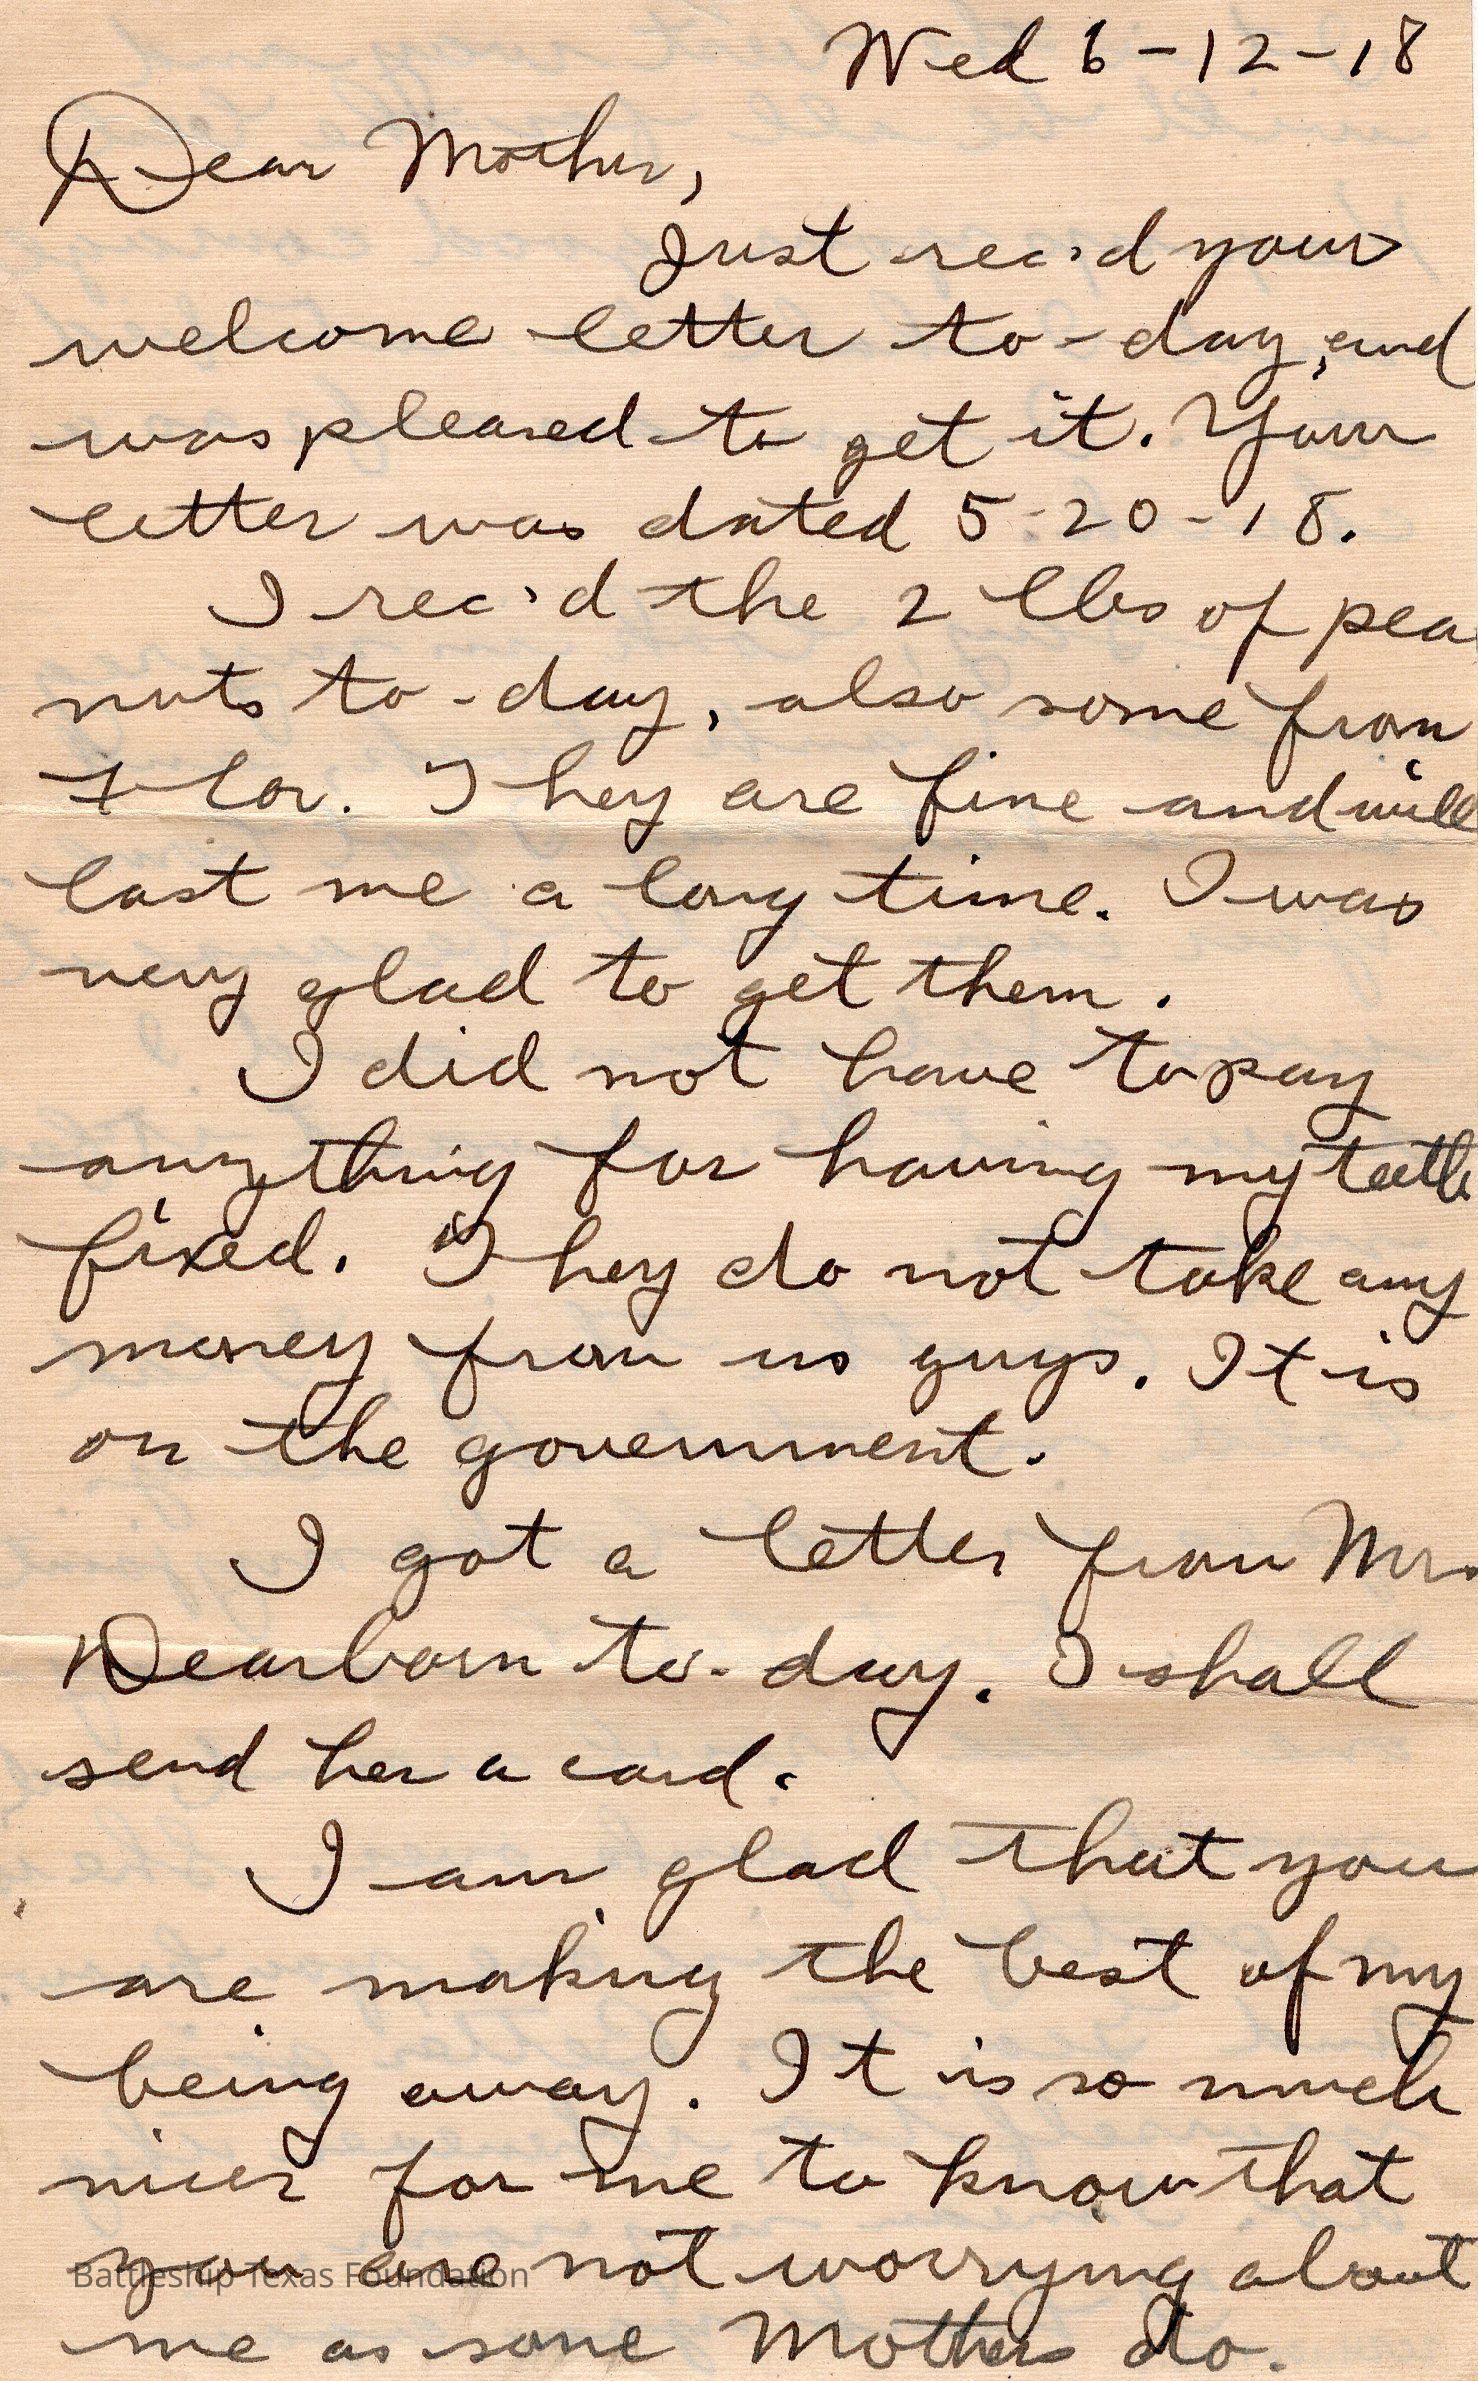 Wed 6-12-18
Dear Mother,
Just rec'd your
welcome letter to-day, and
was pleased to get it. Your
letter was dated 5-20-18.
I rec'd the 2 lbs of pea
nuts to-day, also some from
Flor. They are fine and will
last me a long time. I was
very glad to get them.
I did not have to pay
anything for having my teeth
fixed. They do not take any
money from us guys. It is
on the government.
I got a letter from Mrs.
Dearborn to-day. I shall
send her a card.
I am glad that you
are making the best of my
being away. It is so much
nicer for me to know that
you are not worrying about
Battleship Texas Foundation
me as some Mothers do.